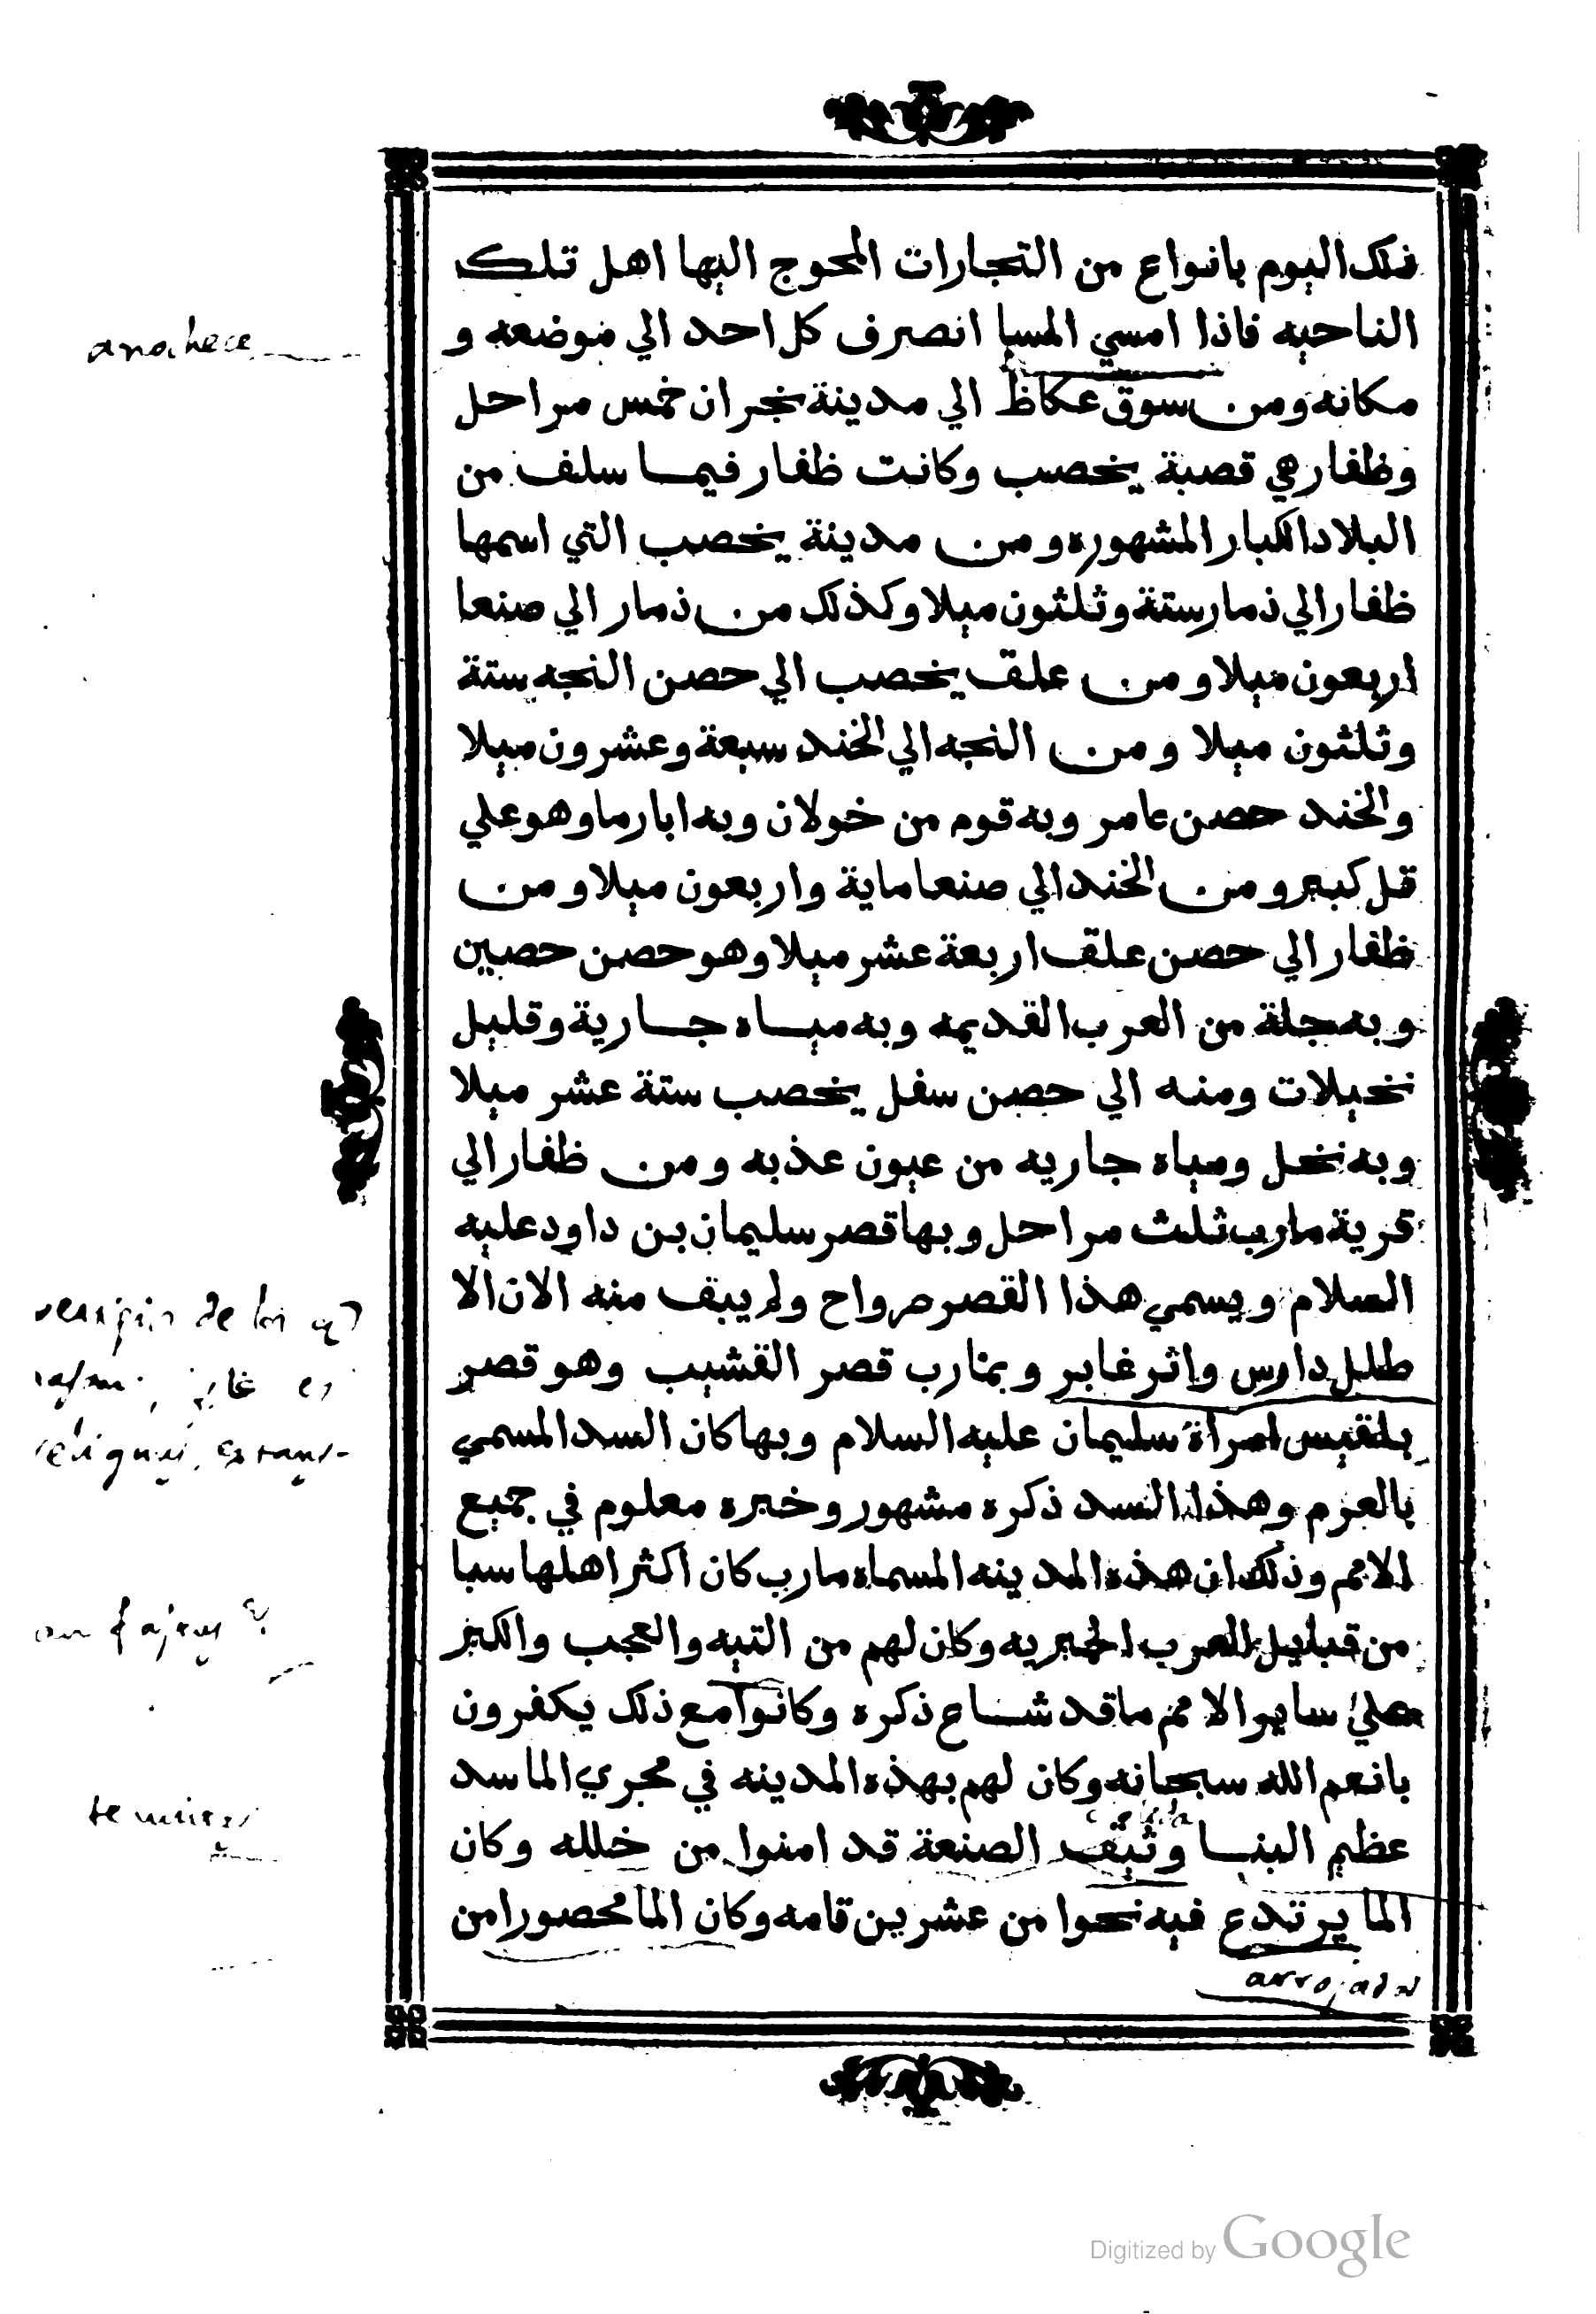 ذلك اليوم بانواع من التجارات المحوج اليها اهل تلك
الناحيه فاذا امسي المسا انصرف كل احد الي موضعه و
مكانه ومن سوق عكاظ الي مدينة نجران خمس مراحل
وظفار هي قصبة يخصب وكانت ظفار فيما سلف من
البلاد الكبار المشهوره ومن مدينة يخصب التي اسمها
ظفار الي ذمار ستة وثلثون ميلا وكذلك من ذمار الي صنعا
اربعون ميلا ومن علق يخصب الي حصن النجه ستة
وثلثون ميلا ومن النجه الي الخند سبعة وعشرون ميلا
والخند حصن عامر وبه قوم من خولان وبه ابار ما وهو علي
قل كبير ومن الخند الي صنعا ماية واربعون ميلا ومن
ظفار الي حصن علق اربعة عشر ميلا وهو حصن حصين
وبه جلة من العرب القديمه وبه مياه جارية وقليل
نخيلات ومنه الي حصن سفل يخصب ستة عشر ميلا
وبه نخل ومياه جاريه من عيون عذبه ومن ظفار الي
قرية مارب ثلث مراحل وبها قصر سليمان بن داود عليه
السلام ويسمي هذا القصر صرواح ولم يبق منه الان الا
طلل دارس واثر غابر وبمارب قصر القشيب وهو قصر
بلقيس امراة سليمان عليه السلام وبها كان السد المسمي
بالعرم وهذا السد ذكره مشهور وخبره معلوم في جميع
الامم وذلك ان هذه المدينه المسماه مارب كان اكثر اهلها سبا
من قبايل العرب الحميريه وكان لهم من التيه والعجب والكبر
علي ساير الامم ما قد شاع ذكره وكانوا مع ذلك يكفرون
بانعم الله سبحانه وكان لهم بهذه المدينه في مجري الما سد
عظيم البنا وثيق الصنعة قد امنوا من خلله وكان
الما يرتدع فيه نحوا من عشرين قامه وكان الما محصورا من
anochece
غابر
arrojada
Digitized by Google